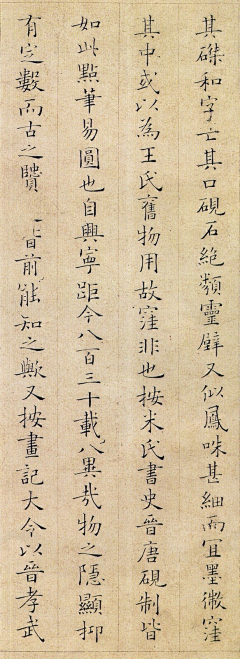 其磔和字亡其口硯石絶類靈壁又似鳳咮甚細而冝墨微窪
其中或以為王氏舊物用故窪非也按米氏書史晉唐硯制皆
如此點筆易圓也自興寧距今八百三十載八異哉物之隱顯抑
有定數而古之前能知之歟又按畫記大令以晉孝武